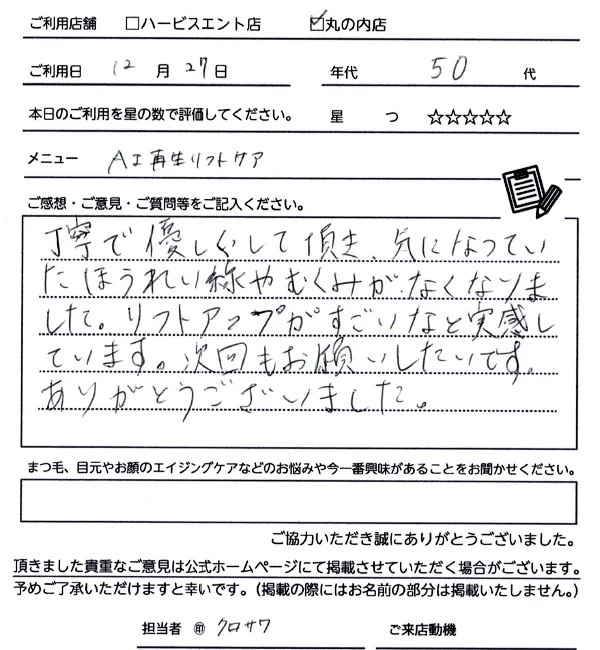 ご利用店舗 □ハービスエント店 ☑丸の内店
ご利用日 12 月 27 日 年代 50 代
本日のご利用を星の数で評価してください。 星 つ ☆☆☆☆☆
メニュー AI再生リフトケア
ご感想・ご意見・ご質問等をご記入ください。
丁寧で優しくして頂き、気になってい
たほうれい線やむくみがなくなりま
した。リフトアップがすごいなと実感し
ています。次回もお願いしたいです。
ありがとうございました。
まつ毛、目元やお顔のエイジングケアなどのお悩みや今一番興味があることをお聞かせください。
ご協力いただき誠にありがとうございました。
頂きました貴重なご意見は公式ホームページにて掲載させていただく場合がございます。
予めご了承いただけますと幸いです。（掲載の際にはお名前の部分は掲載いたしません。）
担当者 ㊞ クロサワ ご来店動機